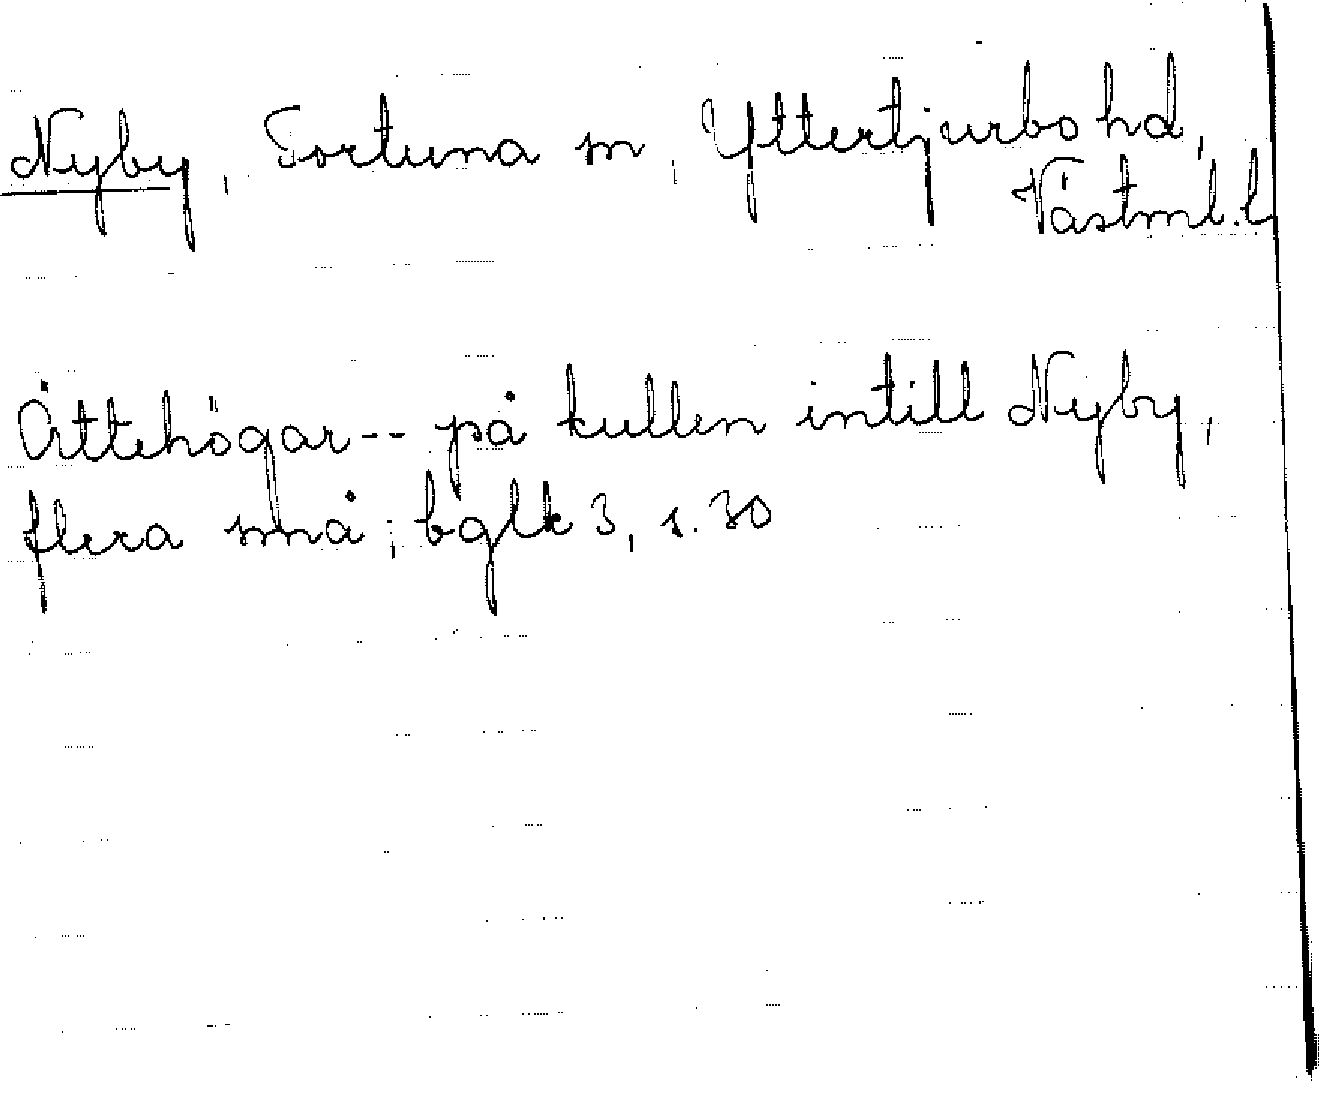 Nyby, Tortuna sn, Yttertjurbo hd,
Västml.l
Ättehögar -- på kullen intill Nyby,
flera små; bglk 3, s. 30